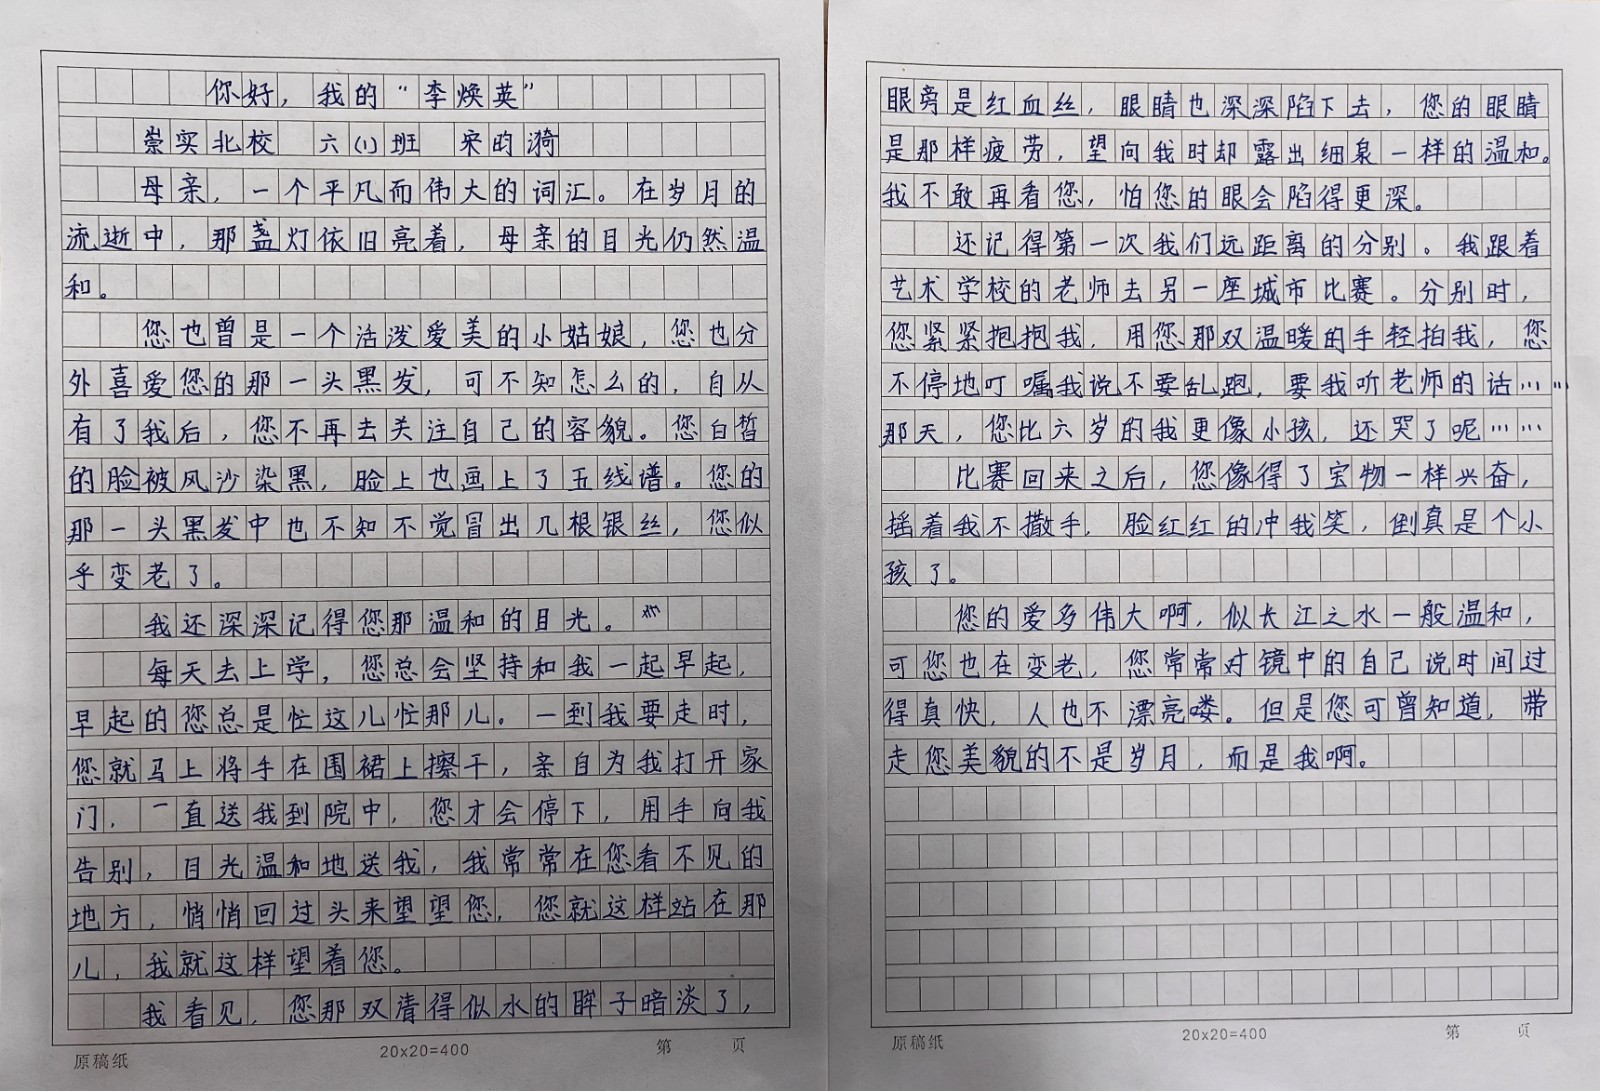 你好，我的“李焕英”
崇实北校 六(1)班 宋昀漪
母亲，一个平凡而伟大的词汇。在岁月的
流逝中，那盏灯依旧亮着，母亲的目光仍然温
和。
您也曾是一个活泼爱美的小姑娘，您也分
外喜爱您的那一头黑发，可不知怎么的，自从
有了我后，您不再去关注自己的容貌。您白皙
的脸被风沙染黑，脸上也画上了五线谱。您的
那一头黑发中也不知不觉冒出几根银丝，您似
乎变老了。
我还深深记得您那温和的目光。
每天去上学，您总会坚持和我一起早起，
早起的您总是忙这儿忙那儿。一到我要走时，
您就马上将手在围裙上擦干，亲自为我打开家
门，一直送我到院中，您才会停下，用手向我
告别，目光温和地送我，我常常在您看不见的
地方，悄悄回过头来望望您，您就这样站在那
儿，我就这样望着您。
我看见，您那双清得似水的眸子暗淡了，
原稿纸
20x20=400
第 页
眼旁是红血丝，眼睛也深深陷下去，您的眼睛
是那样疲劳，望向我时却露出细泉一样的温和。
我不敢再看您，怕您的眼会陷得更深。
还记得第一次我们远距离的分别。我跟着
艺术学校的老师去另一座城市比赛。分别时，
您紧紧抱抱我，用您那双温暖的手轻拍我，您
不停地叮嘱我说不要乱跑，要我听老师的话……
那天，您比六岁的我更像小孩，还哭了呢……
比赛回来之后，您像得了宝物一样兴奋，
摇着我不撒手，脸红红的冲我笑，倒真是个小
孩了。
您的爱多伟大啊，似长江之水一般温和，
可您也在变老，您常常对镜中的自己说时间过
得真快，人也不漂亮喽。但是您可曾知道，带
走您美貌的不是岁月，而是我啊。
原稿纸
20x20=400
第 页